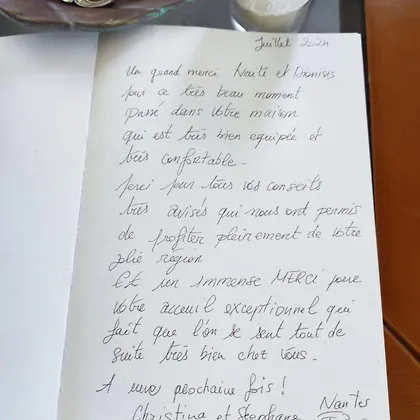 Juillet 2024
Un grand merci Neuté et Dionisis
pour ce très beau moment
passé dans votre maison
qui est très bien equipée et
très confortable.
Merci pour tous vos conseils
très avisés qui nous ont permis
de profiter pleirement de votre
jolie région
Et un immense MERCI pour
votre acceuil exceptionnel qui
fait que l'on se sent tout de
suite très bien chez vous.
A une prochaine fois !
Christina et Stephane Nantes